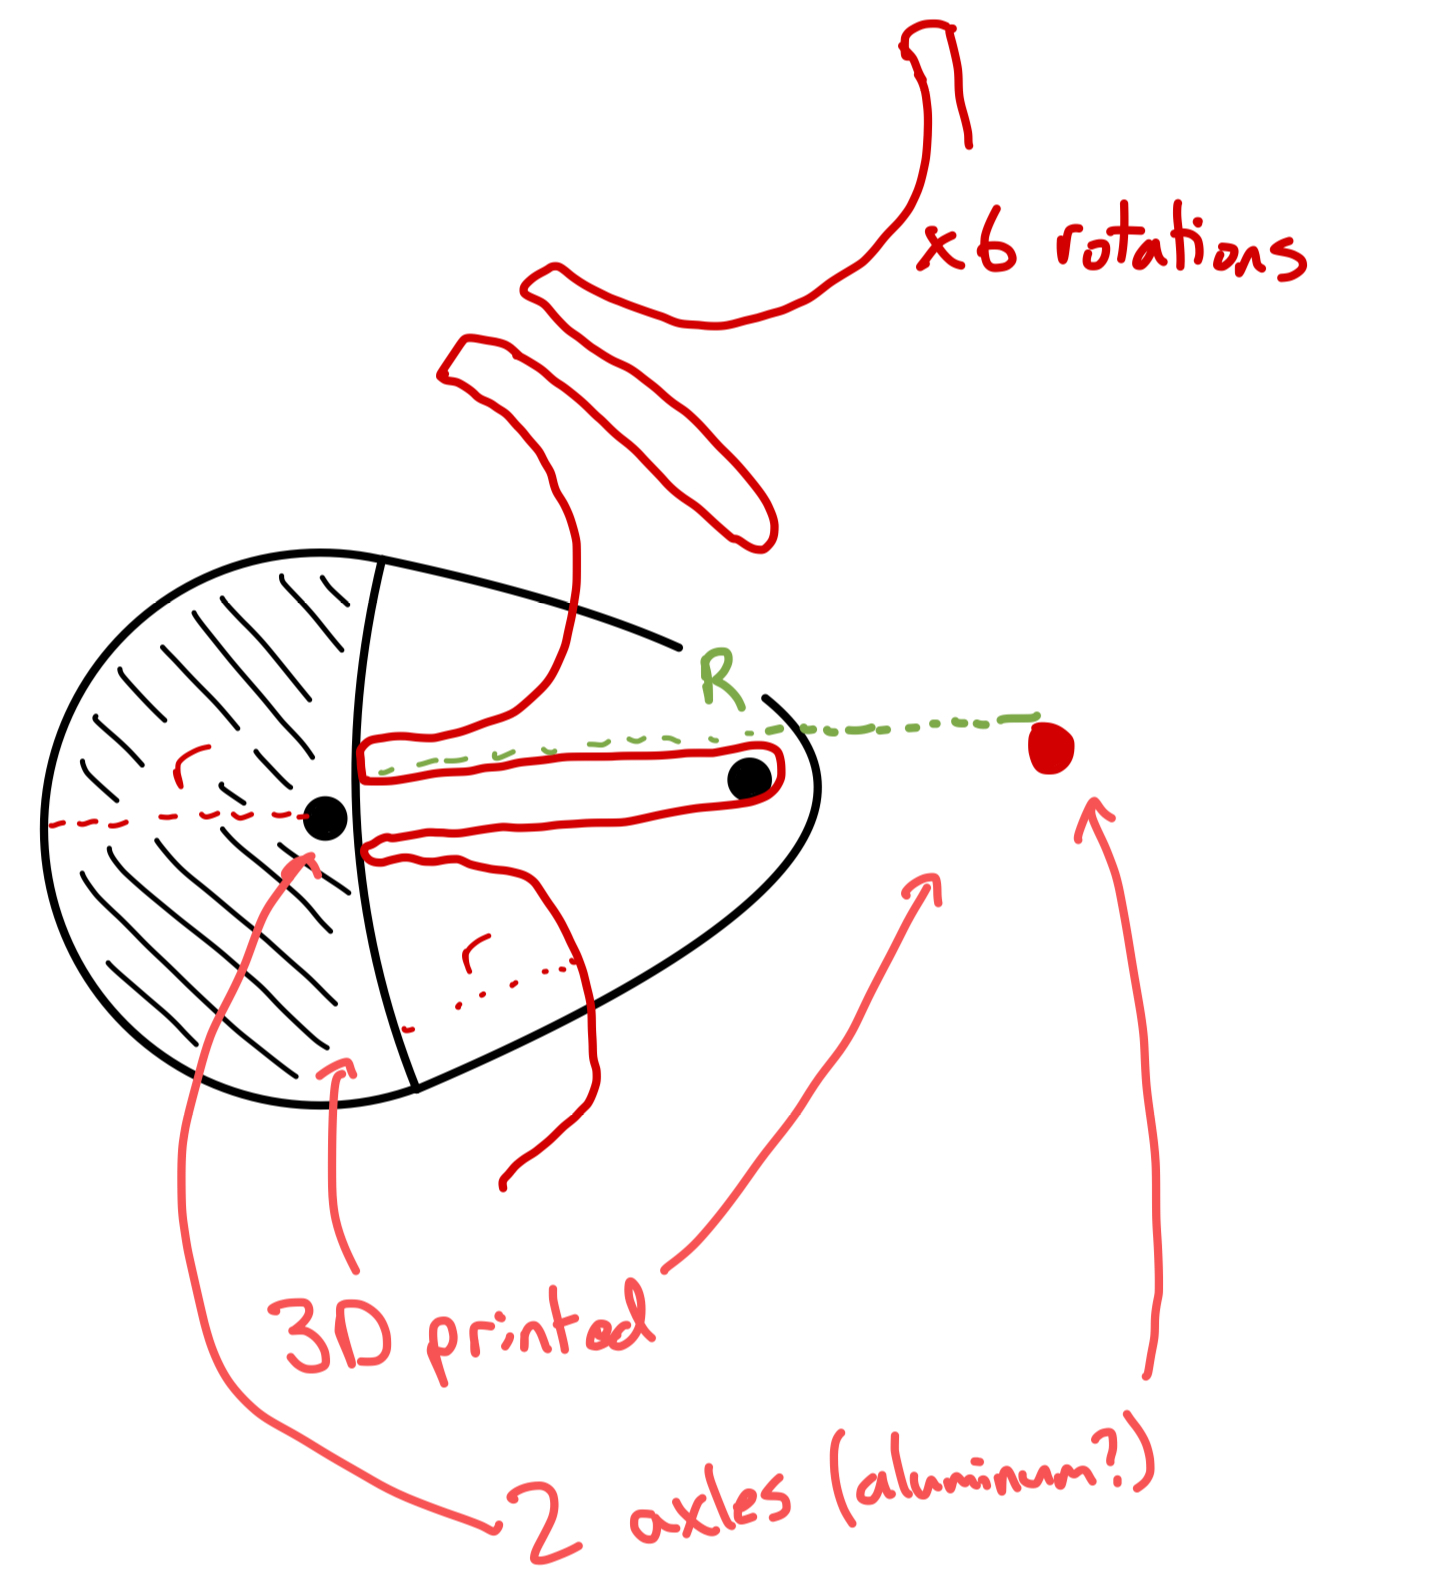 x6 rotations
R
r
r
3D printed
2 axles (aluminum?)